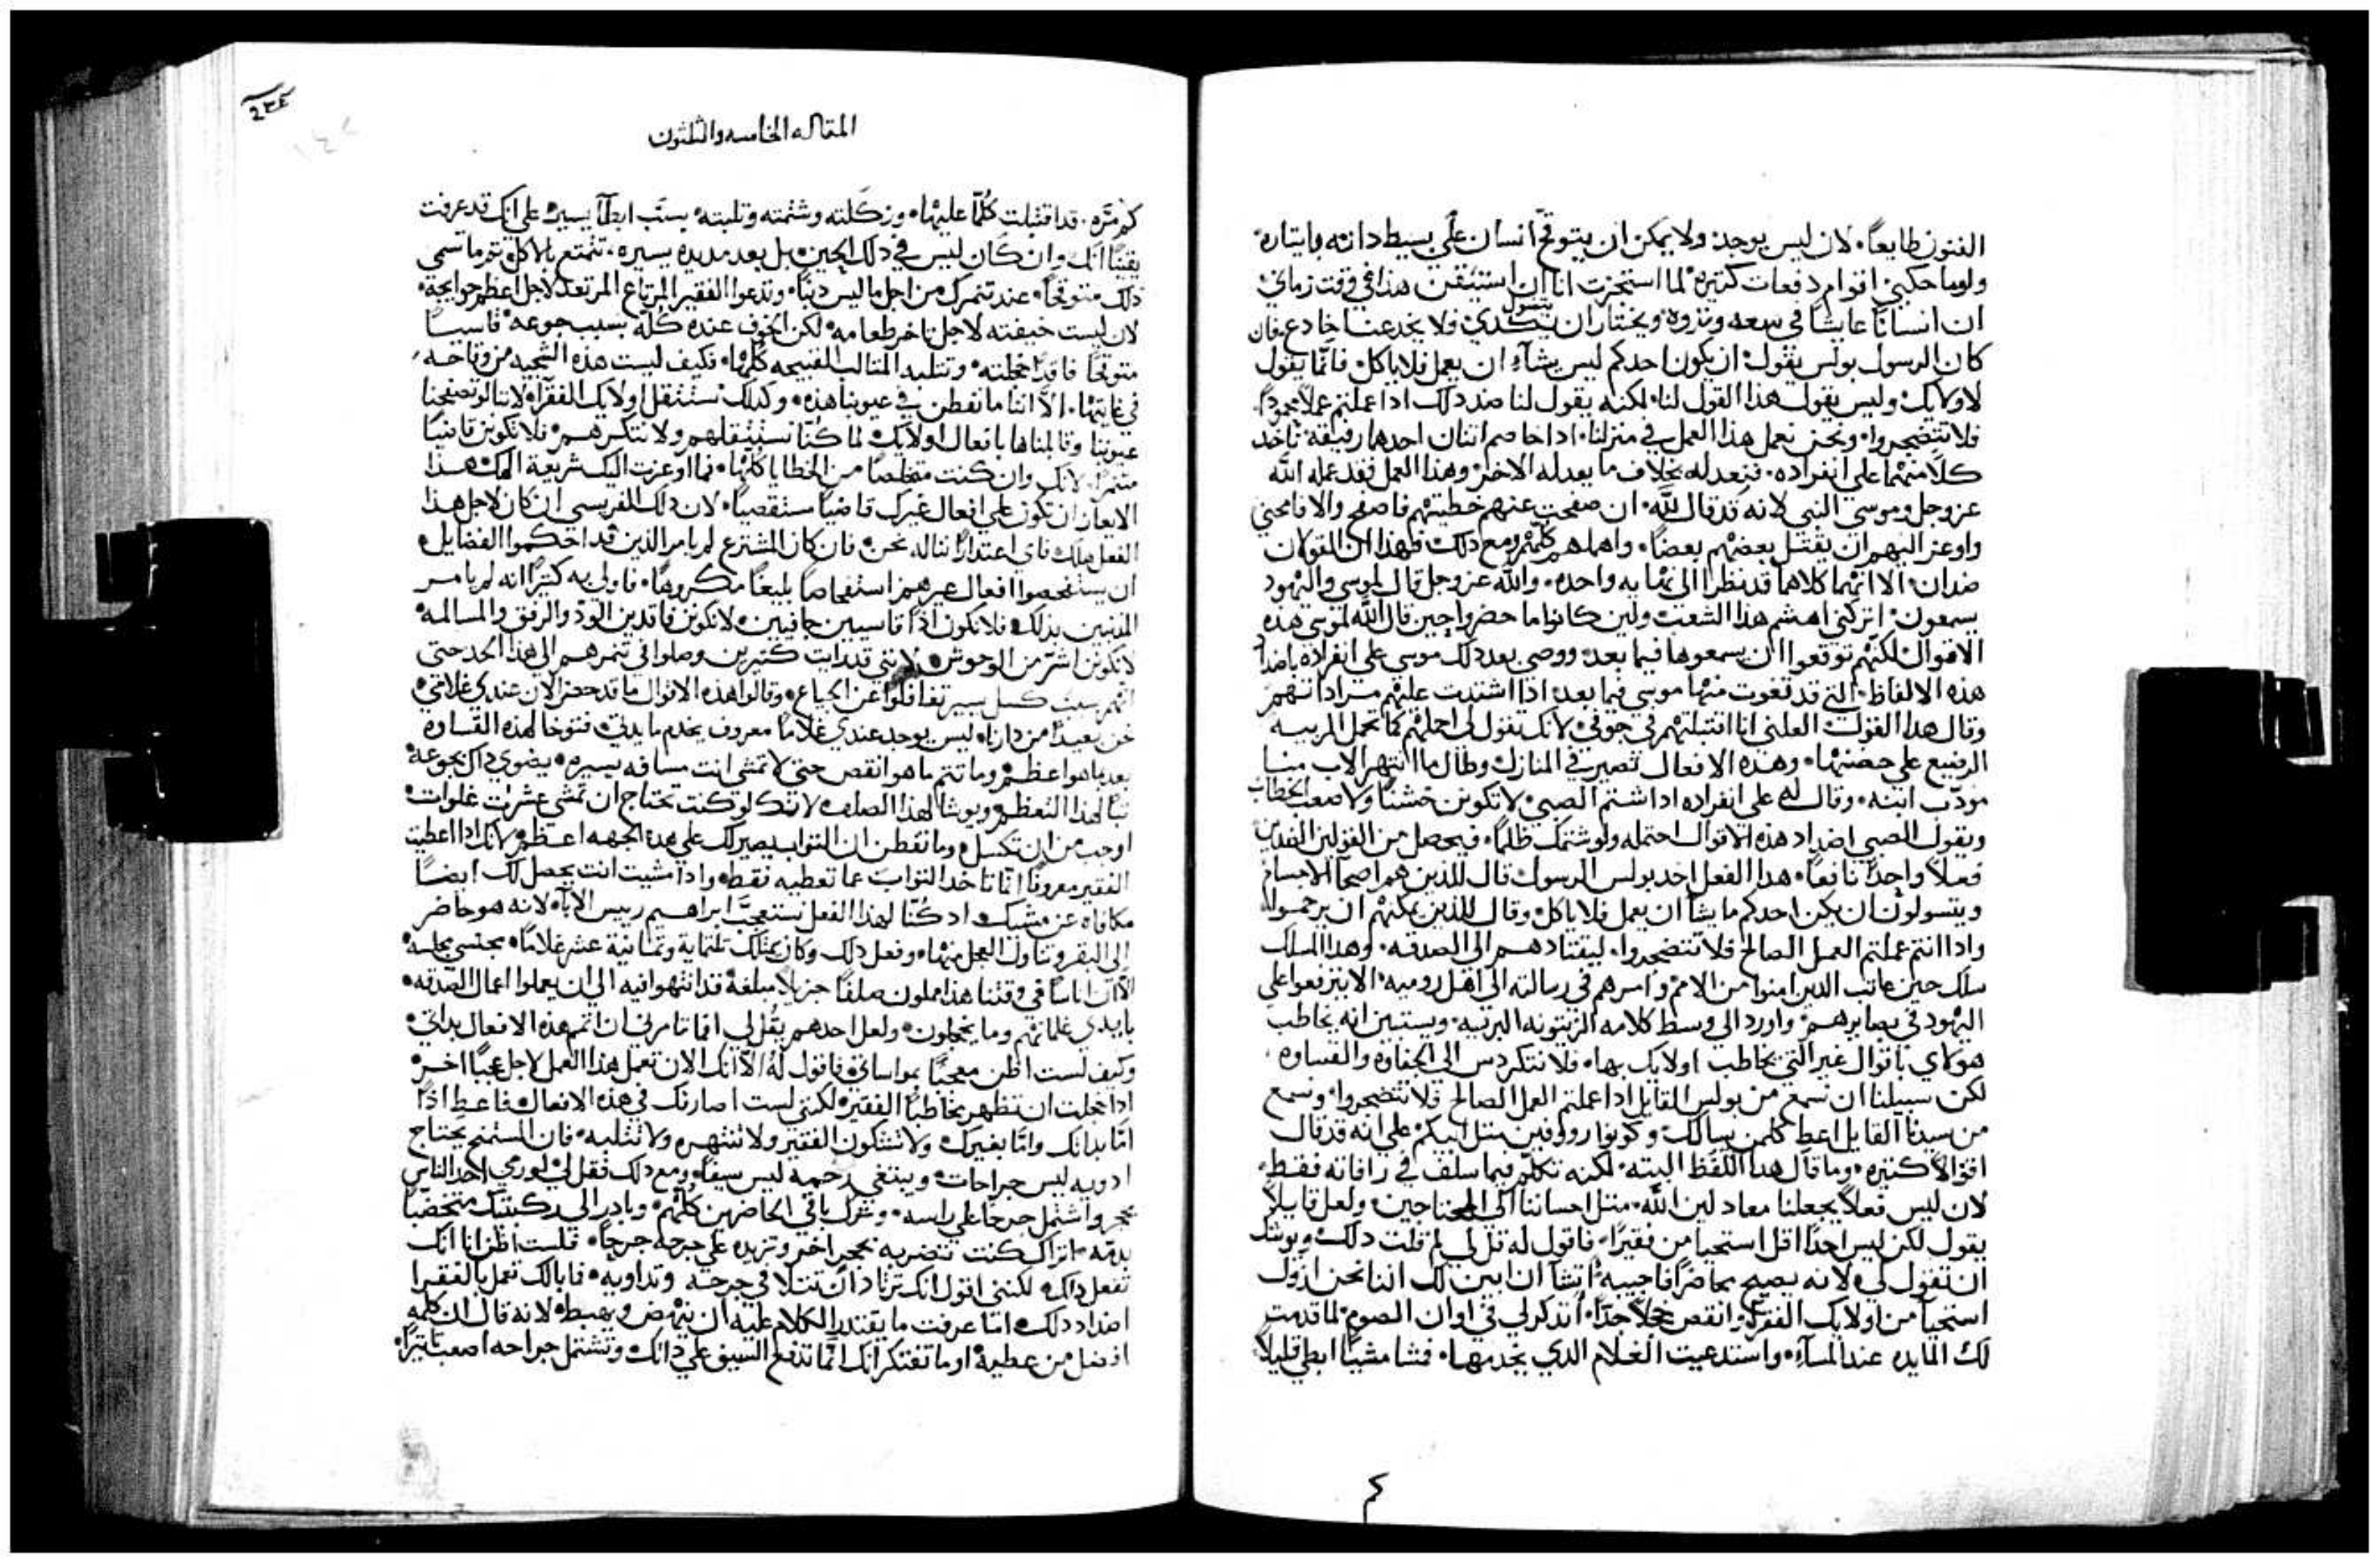 الفنون طايعاً. لان ليس يوجد ولا يمكن ان يتوقح انسان على بسيط داته وايتاره
ولوما حكيني اقوام دفعات كتيره لما استجزت انا ان استيقن هذا في وقت زماني
ان انسانًا عايشًا في سعه وتروه ويختار ان يتسول يتكدي فلا يخدعنا خادع فان
كان الرسول بولس يقول ان يكون احدكم ليس يشاء ان يعمل فلا ياكل فانما يقول
لاولايك وليس يقول هذا القول لنا لكنه يقول لنا ضد دلك ادا عملتم عملاً محموداً
فلا تتضجروا ونحن نعمل هذا العمل في منزلنا ادا خاصم اتنان احدهما رفيقه ناخد
كلاً منهما على انفراده فنعد له بخلاف ما يعد له الاخر وهذا العمل فقد عمله الله
عز وجل وموسى النبي لانه قد قال لله ان صفحت عنهم خطيتهم فاصفح والا فامحني
واوعز اليهم ان يقتل بعضهم بعضاً واهلهم كلهم ومع دلك فهذان القولان
ضدان الا انهما كلاهما قد نظرا الى نهايه واحده والله عز وجل قال لموسى واليهود
يسمعون اتركني اهشم هذا الشعب ولين كانوا ما حضروا حين قال الله لموسى هده
الاقوال لكنهم توقعوا ان يسمعوها فيما بعد ووصى بعد دلك موسى على انفراده باضداد
هذه الالفاظ التي قد تغوت منها موسى فيما بعد ادا اشتدت عليهم مراداتهم
وقال هدا القول العلني انا اقتبلتهم في جوفي لانك تقول لي احملهم كما تحمل المربيه
الرضيع على حضنها وهذه الافعال تصير في المنازل وطال ما انتهر الاب منا
مودب ابنه وقال له على انفراده ادا شتم الصبي لا تكونن خشناً ولا صعب الخطاب
ويقول للصبي اضداد هذه الاقوال احتمله ولو شتمك ظلماً فيحصل من القولين الضدين
فعلاً واحداً نافعاً هدا الفعل اخد بولس الرسول قال للذين هم اصحا الاجسام
ويتسولون ان يكن احدكم ما يشا ان يعمل فلا ياكل وقال للذين يمكنهم ان يرحموا
وادا انتم عملتم العمل الصالح فلا تتضجروا ليقتادهم الى الصدقه وهدا المسلك
سلك حين عاتب الدين امنوا من الامم وامرهم في رسالته الى اهل روميه الا يترفعوا على
اليهود في بصايرهم واورد الى وسط كلامه الزيتونه البريه ويستبين انه يخاطب
هولاي باقوال غير التي يخاطب اولايك بها فلا نتكردس الى الجفاوه والقساوه
لكن سبيلنا ان نسمع من بولس القايل ادا عملتم العمل الصالح فلا تتضجروا ونسمع
من سيدنا القايل اعط كلمن يسالك وكونوا رووفين متل ابيكم على انه قد قال
اقوالاً كتيره وما قال هدا اللفظ البته لكنه تكلم فيما سلف في رافاته فقط
لان ليس فعلاً يجعلنا معادلين الله متل احساننا الى المحتاجين ولعل قايلاً
يقول لكن ليس احداً اقل استحيا من فقيراً فاقول له قل لي لم قلت دلك ويوشك
ان تقول لي لانه يصيح محاضراً فاجيبه اتشا ان ابين لك اننا نحن ازول
استحيآ من اولايك الفقرا وانقص خجلاً جداً اتدكر لي في اوان الصوم لما قدمت
لك المايده عند المسآء واستدعيت الغلام الدي يخدمها فشا مشيًا ابطي قليلاً
المقاله الخامسه والتلتون
كم مره قد اقتبلت كلما عليها وركلته وشتمته وتلبته بسبب ابطآ يسير على انك قد عرفت
يقيناً انك وان كان ليس في دلك الحين بل بعد مديده يسيره تتمتع بالاكل تم ما تسمي
ذلك متوقحًا عند تنمرك من اجل ما ليس دينًا وتدعوا الفقير المرتاع المرتعد لاجل اعظم حوايجه
لان ليست خيفته لاجل تاخر طعامه لكن الخوف عنده كله بسبب جوعه قاسياً
متوقحًا فاقداً خجلته وتتلبه المتالب القبيحه كلها فكيف ليست هذه السجيه من وقاحه
في غايتها الا اننا ما نفطن في عيوبنا هذه وكدلك نستتقل اولايك الفقرآء لاننا لو تصفحنا
عيوبنا وقابلناها بافعال اولايك لما كنا نستتقلهم ولا نتكرههم فلا تكونن قاضياً
متنمراً لانك وان كنت متخلصاً من الخطايا كلها فما اوعزت اليك شريعة الهك هدا
الايعاز ان تكون على افعال غيرك قاضياً مستقصياً لان دلك الفريسي ان كان لاجل هذا
الفعل هلك فاي اعتداراً نناله نحن فان كان المشترع لم يامر الذين قد احكموا الفضايل
ان يستفحصوا افعال غيرهم استفحاصاً بليغاً مكروهاً فاولى به كتيراً انه لم يامر
المذنبين بدلك فلا نكون اذاً قاسيين جافيين لا نكونن فاقدين الود والرفق والمسالمه
لا نكونن اشر من الوحوش لانني قد رايت كتيرين وصلوا في تنمرهم الى هذا الحد حتى
انهم بسبب كسل يسير تغافلوا عن الجياع وقالوا هذه الاقوال ما قد حضر الان عندي غلامي
نحن بعيداً من دارنا ليس يوجد عندي غلامًا معروف يخدم ما يدلني فتوخا لهذه القساوه
بعد ما هو اعظم وما تتم ما هو انقص حتى لا تمشي انت مسافه يسيره يضوي داك بجوعه
تباً لهدا التعظم وبوشا لهذا الصلف لانك لو كنت تحتاج ان تمشي عشرات غلوات
اوجب من ان تكسل وما تفطن ان التواب يصير لك على هده الجهه اعظم لانك ادا اعطيت
الفقير معروفاً انما تاخد التواب عما تعطيه فقط وادا مشيت انت يحصل لك ايضاً
مكافاه عن مشيك اد كنا لهذا الفعل نستعجب ابراهيم رييس الآباء لانه هو حاضر
الى البقر وتناول العجل منها وفعل دلك وكان يملك تلتماية وتمانية عشر غلامًا بجنسي مجلسه
الا ان اناساً في وقتنا هذا مملون صلفًا جزيلاً مبلغه قد انتهوا فيه الى ان يعملوا اعمال الصدقه
بايدي غلمانهم وما يخجلون ولعل احدهم يقل لي افما تامرني ان اتمم هذه الافعال بداتي
وكيف لست اظن معجباً بمواساتي فاقول له الا انك الان تعمل هذا العمل لاجل عجباً اخر
ادا خجلت ان تظهر مخاطباً الفقير لكنني لست اصارنك في هذه الافعال فاعط اذاً
اما بداتك واما بغيرك ولا تشكون الفقير ولا تنتهره ولا تتلبه فان المستمنح يحتاج
ادويه ليس جراحات ويبتغي رحمه ليس سيفاً ومع دلك فقل لي لو رمي احد الناس
بحجر واشتمل جرحاً على راسه وترك باقي الحاضرين كلهم وبادر الى ركبتيك متخضباً
بدمه اتراك كنت تضربه بحجر اخر وتزيده على جرحه جرحاً فلست اظن انا انك
تفعل داك لكنني اقول انك ترتاد ان تتلافى جرحه وتداويه فما بالك تعمل بالفقرا
اضداد دلك اما عرفت ما يقتدر الكلام عليه ان ينهض ويهبط لانه قال ان كلمه
افضل من عطيه او ما تفتكر انك انما تدفع السيف على داتك وتشتمل جراحه اصعب تاتيراً
كم